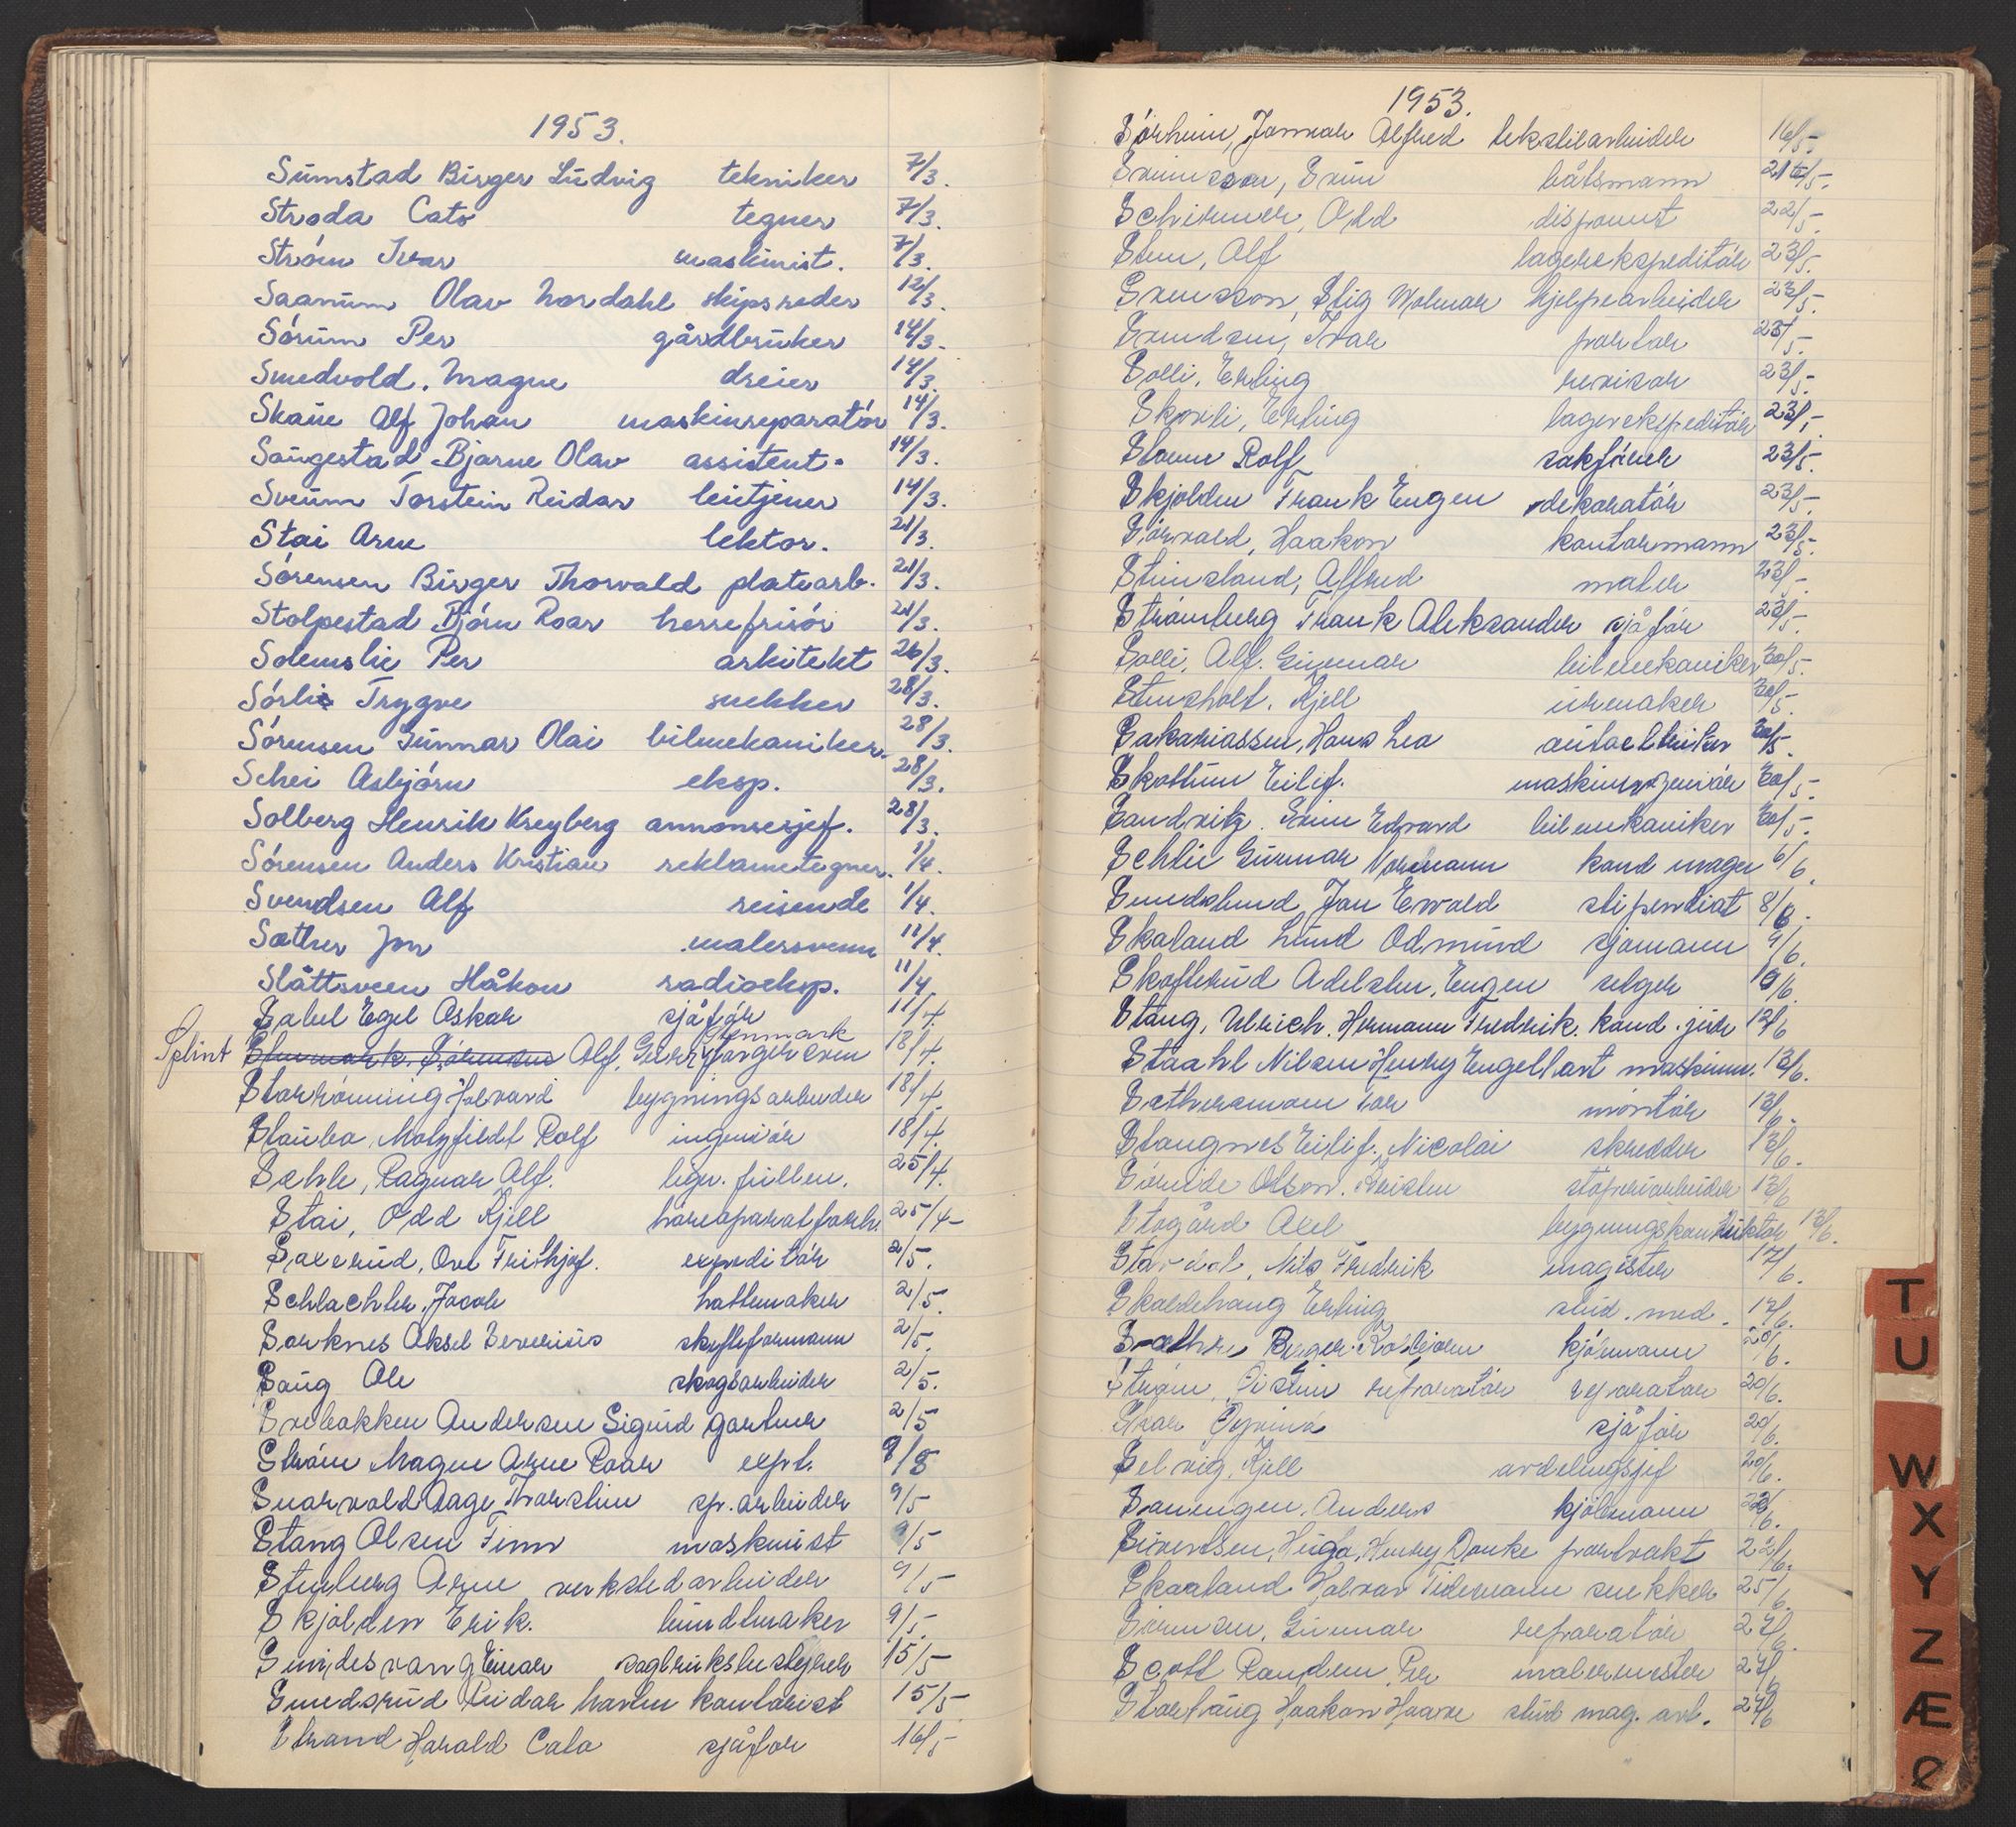 1953.
Sumstad Birger Ludvig tekniker 7/3.
Stroda Cato tegner 7/3.
Strøm Ivar maskinist. 7/3.
Saanum Olav Nordahl skipsreder 12/3.
Sørum Per gårdbruker 14/3.
Smedvold. Magne dreier 14/3.
Skaue Alf Johan maskinreparatør 14/3.
Saugestad Bjarne Olav assistent. 14/3.
Sveum Torstein Reidar leietjener 14/3.
Stai Arne lektor. 21/3.
Sørensen Birger Thorvald platearb. 21/3.
Stolpestad Bjørn Roar herrefrisør 21/3.
Solemslie Per arkitekt 26/3.
Sørlie Trygve snekker 28/3.
Sørensen Gunnar Olai bilmekaniker. 28/3.
Schei Asbjørn eksp. 28/3.
Solberg Henrik Kreyberg annonsesjef. 28/3.
Sørensen Anders Kristian reklametegner. 1/4.
Svendsen Alf reisende 1/4.
Sæther Jon malersvenn 11/4.
Slåttsveen Håkon radioeksp. 11/4
Sabel Egel Oskar sjåfør 11/4.
Splint Stenmark. Sørensen Alf. Danmark 18/4.
Storrønning Halvard bygningsarbeider 18/4
Stauba, Rolf ingeniør 18/4.
Sehle, Ragnar Alf. 25/4.
Stai, Odd Kjell høreaparatforh. 25/4-
Saxerud, Ove Frithjof. expeditør 2/5.
Schlachter, Jacob hattemaker 2/5.
Sørknes Aksel Severius skifteformann 2/5.
Saug Ole skogsarbeider 2/5.
Svebakken Andersen Sigurd gartner 2/5
Strøm Magne Arne Roar expd. 8/5
Snarvold Aage Thorstein sp. arbeider 9/5
Stang Olsen Finn maskinist 9/5
Stenberg Arne verkstedarbeider 9/5
Skjolden Erik. bundtmaker 9/5.
Sundesvang Einar sagbruksbestyrer 15/5
Smedsrud Reidar kontorist 15/5
Strand Harald Cato sjåfør 16/5
1953.
Sørheim, Jonnar Alfred tekstilarbeider 16/5.
Svensson, Sven båtsmann 21/5.
Schirmer, Odd disponent 22/5.
Sten, Alf lagerekspeditør 23/5.
Svensson, Stig Wolmar hjelpearbeider 23/5.
Svendsen, Ivar portør 23/5.
Solli, Erling revisor 23/5.
Skovli, Erling lagerekspeditør 23/5.
Storm Rolf sakfører 23/5.
Skjolden Frank Eugen dekoratør 23/5.
Sørvald, Haakon kontormann 23/5.
Steinsland, Alfred maler 23/5.
Strømberg Frank Aleksander sjåfør 23/5.
Solli, Alf. Gunnar bilmekaniker 30/5.
Stensholt. Kjell urmaker 30/5.
Sakariassen, Hans Leo autoelektriker 30/5.
Skottum Eilif. maskiningeniør 30/5.
Sandvitz. Svein Edvard bilmekaniker 30/5.
Schlie Gunnar Normann kand magen 6/6.
Sundslund Jan Ewald stipendiat 8/6.
Skaland Lund Odmund sjømann 9/6.
Skofterud Adelsten, Eugen selger 10/6.
Stang, Ulrich. Hermann Fredrik. kand. jur 12/6
Staahl Nilsen Henry Engelhart maskinm. 13/6.
Sæthersmoen Tor montør 13/6.
Stangnes Eilif. Nicolai skredder 13/6.
Sørlide Olson. Kristen støperiarbeider 13/6
Stogård Axel bygningskontrollør 13/6.
Stardal, Nils Fredrik magister 17/6.
Skaldehaug Erling stud. med. 17/6.
Sæthre Birger Kolbjørn kjøsmann 20/6.
Strøm, Øistein reparatør reparatør 20/6.
Skar Eyvind sjåfør 20/6.
Selvig, Kjell avdelingsjef 20/6.
Sanengen. Anders kjølemann 22/6.
Sivertsen, Hugo, Henry Danke portvakt 22/6.
Skaaland Halvar Tidemann snekker 25/6.
Sørensen, Gunnar reparatør 27/6.
Scott Randem Per malermester 27/6
Storhaug Haakon Haave stud mag. art. 27/6
T
U
W
X
Y
Z
Æ
Ø